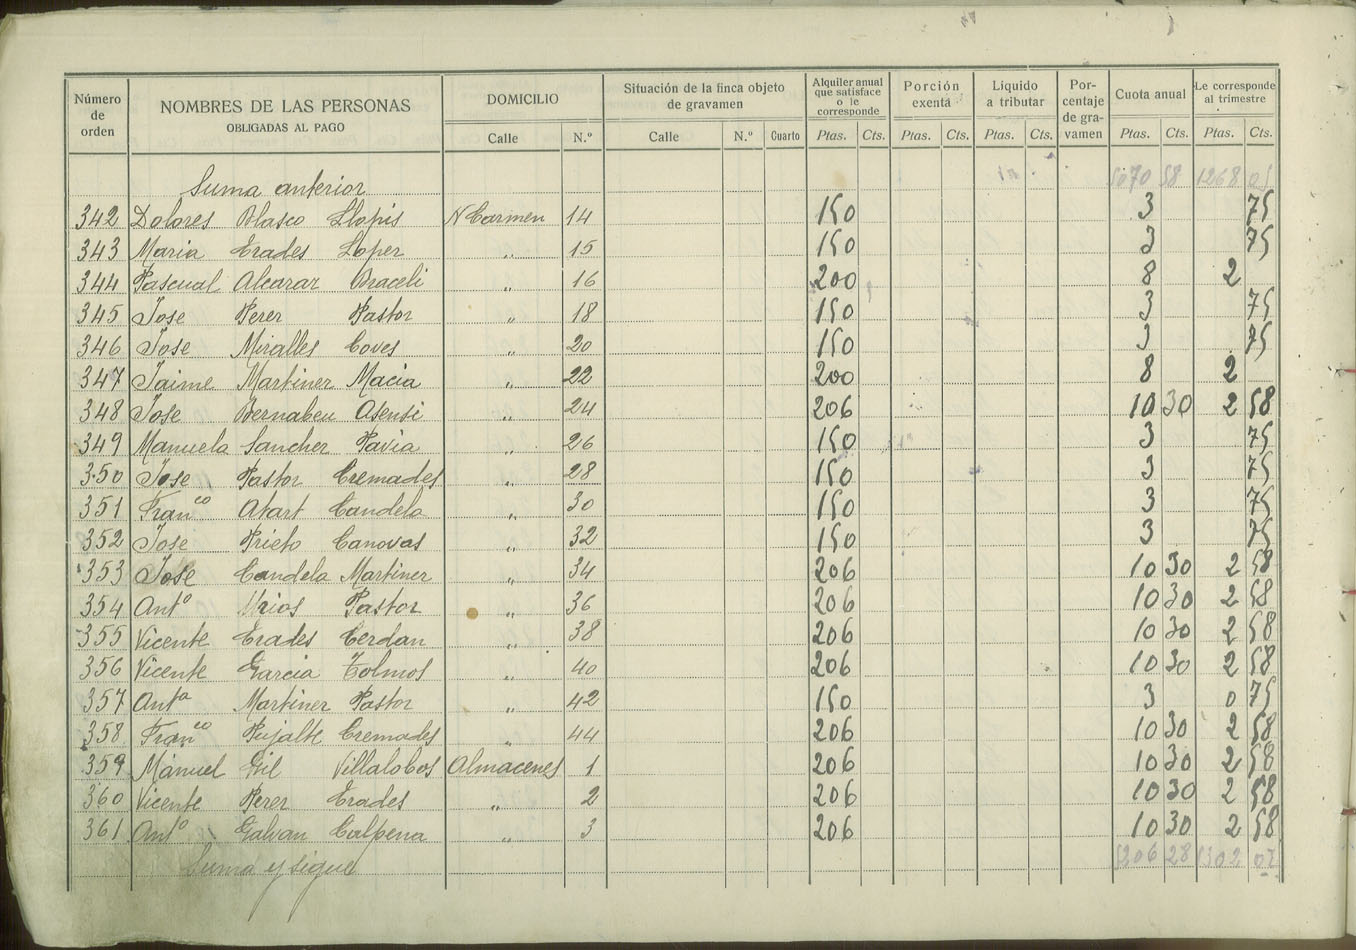 Número de orden NOMBRES DE LAS PERSONAS OBLIGADAS AL PAGO DOMICILIO Situación de la finca objeto de gravamen Alquiler anual que satisface o le corresponde Porción exenta Líquido a tributar Por-centaje de gra-vamen Cuota anual Le corresponde al trimestre
Calle N.º Calle N.º Cuarto Ptas. Cts. Ptas. Cts. Ptas. Cts. Ptas. Cts. Ptas. Cts.
Suma anterior 5070 58 1268 05
342 Dolores Blasco Llopis N Carmen 14 150 3 75
343 Maria Erades Loper " 15 150 3 75
344 Pascual Alcarar Braceli " 16 200 8 2
345 Jose Perer Pastor " 18 150 3 75
346 Jose Miralles Coves " 20 150 3 75
347 Jaime Martiner Macia " 22 200 8 2
348 Jose Bernabeu Asensi " 24 206 10 30 2 58
349 Manuela Sancher Pavia " 26 150 3 75
350 Jose Pastor Cremades " 28 150 3 75
351 Franco Abart Candela " 30 150 3 75
352 Jose Prieto Canovas " 32 150 3 75
353 Jose Candela Martiner " 34 206 10 30 2 58
354 Anto Urios Pastor " 36 206 10 30 2 58
355 Vicente Erades Cerdan " 38 206 10 30 2 58
356 Vicente Garcia Tolmos " 40 206 10 30 2 58
357 Anta Martiner Pastor " 42 150 3 0 75
358 Franco Pujalte Cremades " 44 206 10 30 2 58
359 Manuel Gil Villalobos Almacenes 1 206 10 30 2 58
360 Vicente Perer Erades " 2 206 10 30 2 58
361 Anto Galvan Calpena " 3 206 10 30 2 58
Suma y sigue 5206 28 1302 07